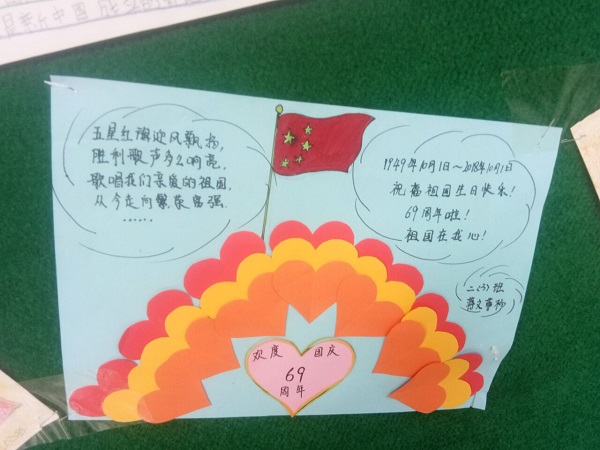 五星红旗迎风飘扬,
胜利歌声多么响亮,
歌唱我们亲爱的祖国,
从今走向繁荣富强.
......
1949年10月1日~2018年10月1日
祝福祖国生日快乐!
69周年啦!
祖国在我心!
二(3)班
欢度 国庆
69
周年